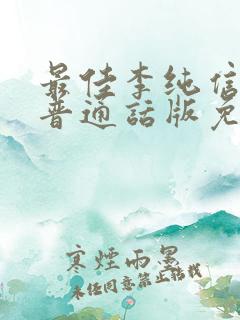 最佳李纯信
普通話版免
寒煙雨墨
未经同意禁止转载